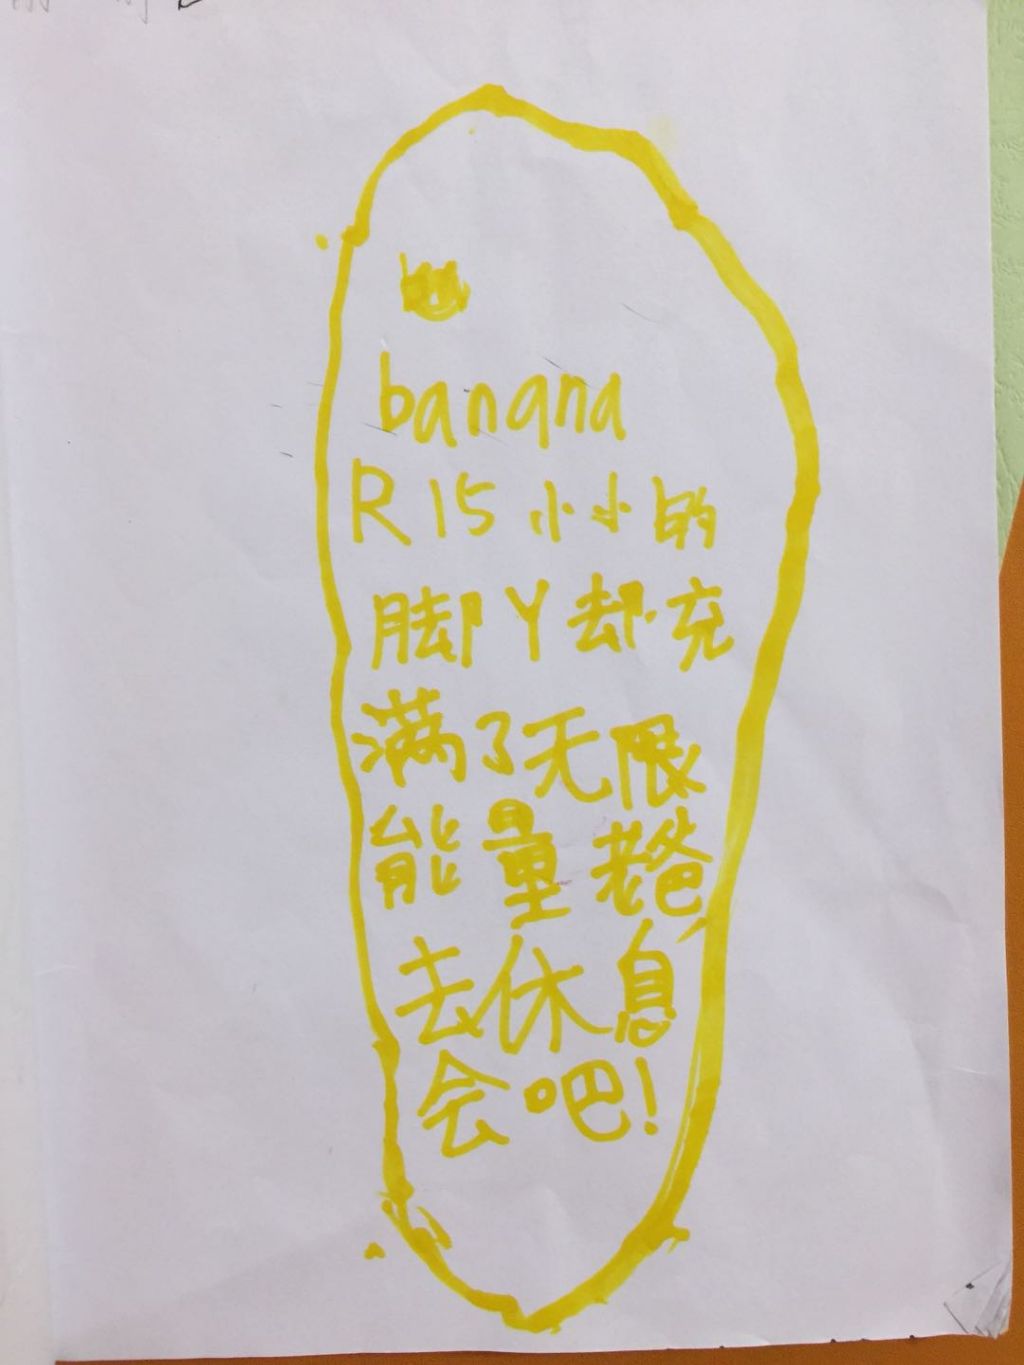 banana
R 15 小小的
脚丫却充
满了无限
能量老爸
去休息
会吧!